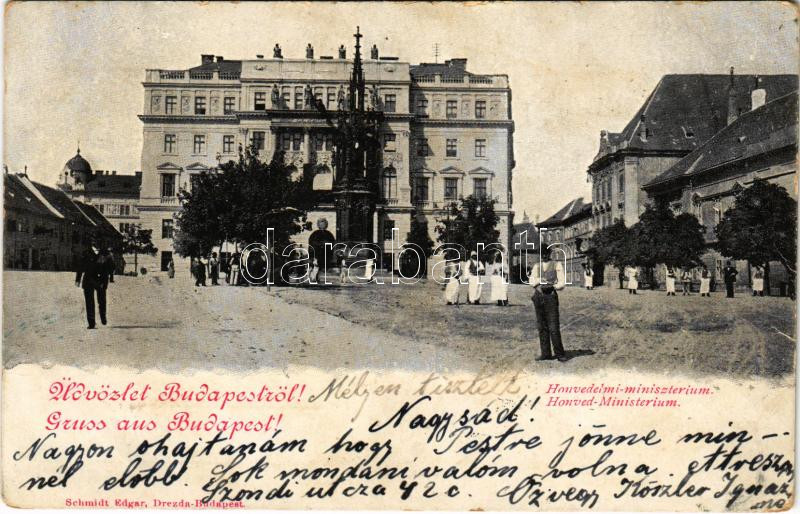 darabanth.com
Üdvözlet Budapestről!
Gruss aus Budapest!
Honvedelmi-miniszterium.
Honved-Ministerium.
Mélyen tisztelt
Nagysád!
Nagyon ohajtanám hogy Pestre jönne min-
nél elöbb. Sok mondani valóm volna. Attvesz,
Szondi utcza 42 c. Özvegy Köszler Ignáz
né
Schmidt Edgar, Drezda-Budapest.